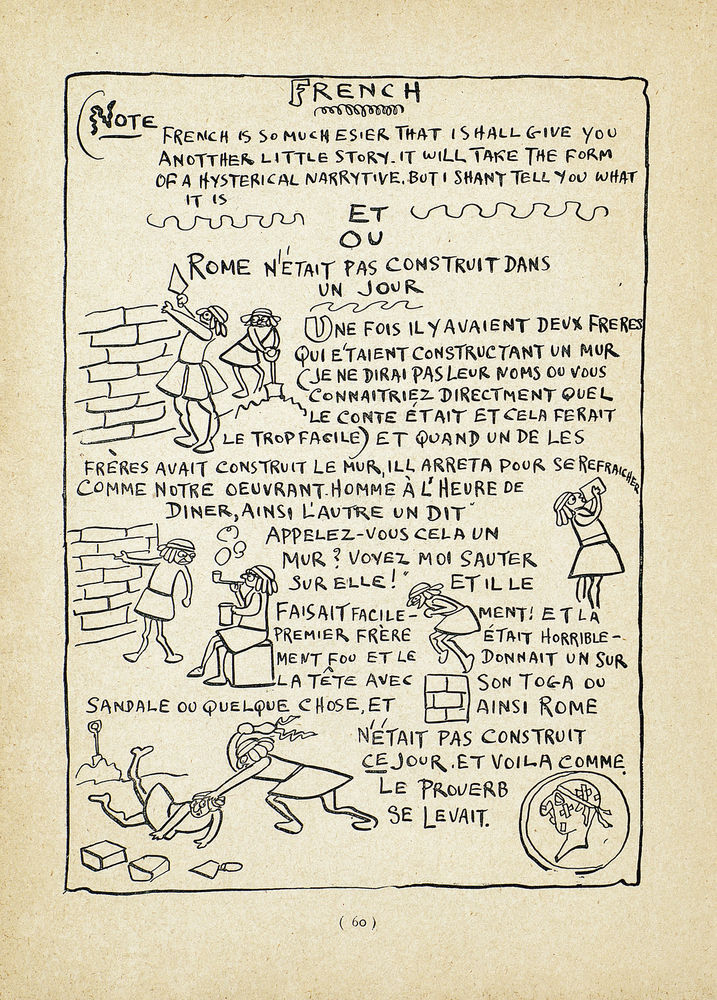 FRENCH
NOTE
FRENCH IS SO MUCH ESIER THAT I SHALL GIVE YOU
ANOTTHER LITTLE STORY. IT WILL TAKE THE FORM
OF A HYSTERICAL NARRYTIVE. BUT I SHANT TELL YOU WHAT
IT IS
ET
OU
ROME N'ÉTAIT PAS CONSTRUIT DANS
UN JOUR
UNE FOIS IL Y AVAIENT DEUX FRERES
QUI ÉTAIENT CONSTRUCTANT UN MUR
(JE NE DIRAI PAS LEUR NOMS OU VOUS
CONNAITRIEZ DIRECTMENT QUEL
LE CONTE ÉTAIT ET CELA FERAIT
LE TROP FACILE) ET QUAND UN DE LES
FRÈRES AVAIT CONSTRUIT LE MUR, ILL ARRETA POUR SE REFRAICHER
COMME NOTRE OEUVRANT. HOMME À L'HEURE DE
DINER, AINSI L'AUTRE UN DIT "
APPELEZ-VOUS CELA UN
MUR? VOYEZ MOI SAUTER
SUR ELLE!" ET IL LE
FAISAIT FACILE- MENT! ET LA
PREMIER FRÈRE ÉTAIT HORRIBLE-
MENT FOU ET LE DONNAIT UN SUR
LA TÊTE AVEC SON TOGA OU
SANDALE OU QUELQUE CHOSE, ET AINSI ROME
N'ÉTAIT PAS CONSTRUIT
CE JOUR. ET VOILA COMME
LE PROVERB
SE LEVAIT.
( 60 )